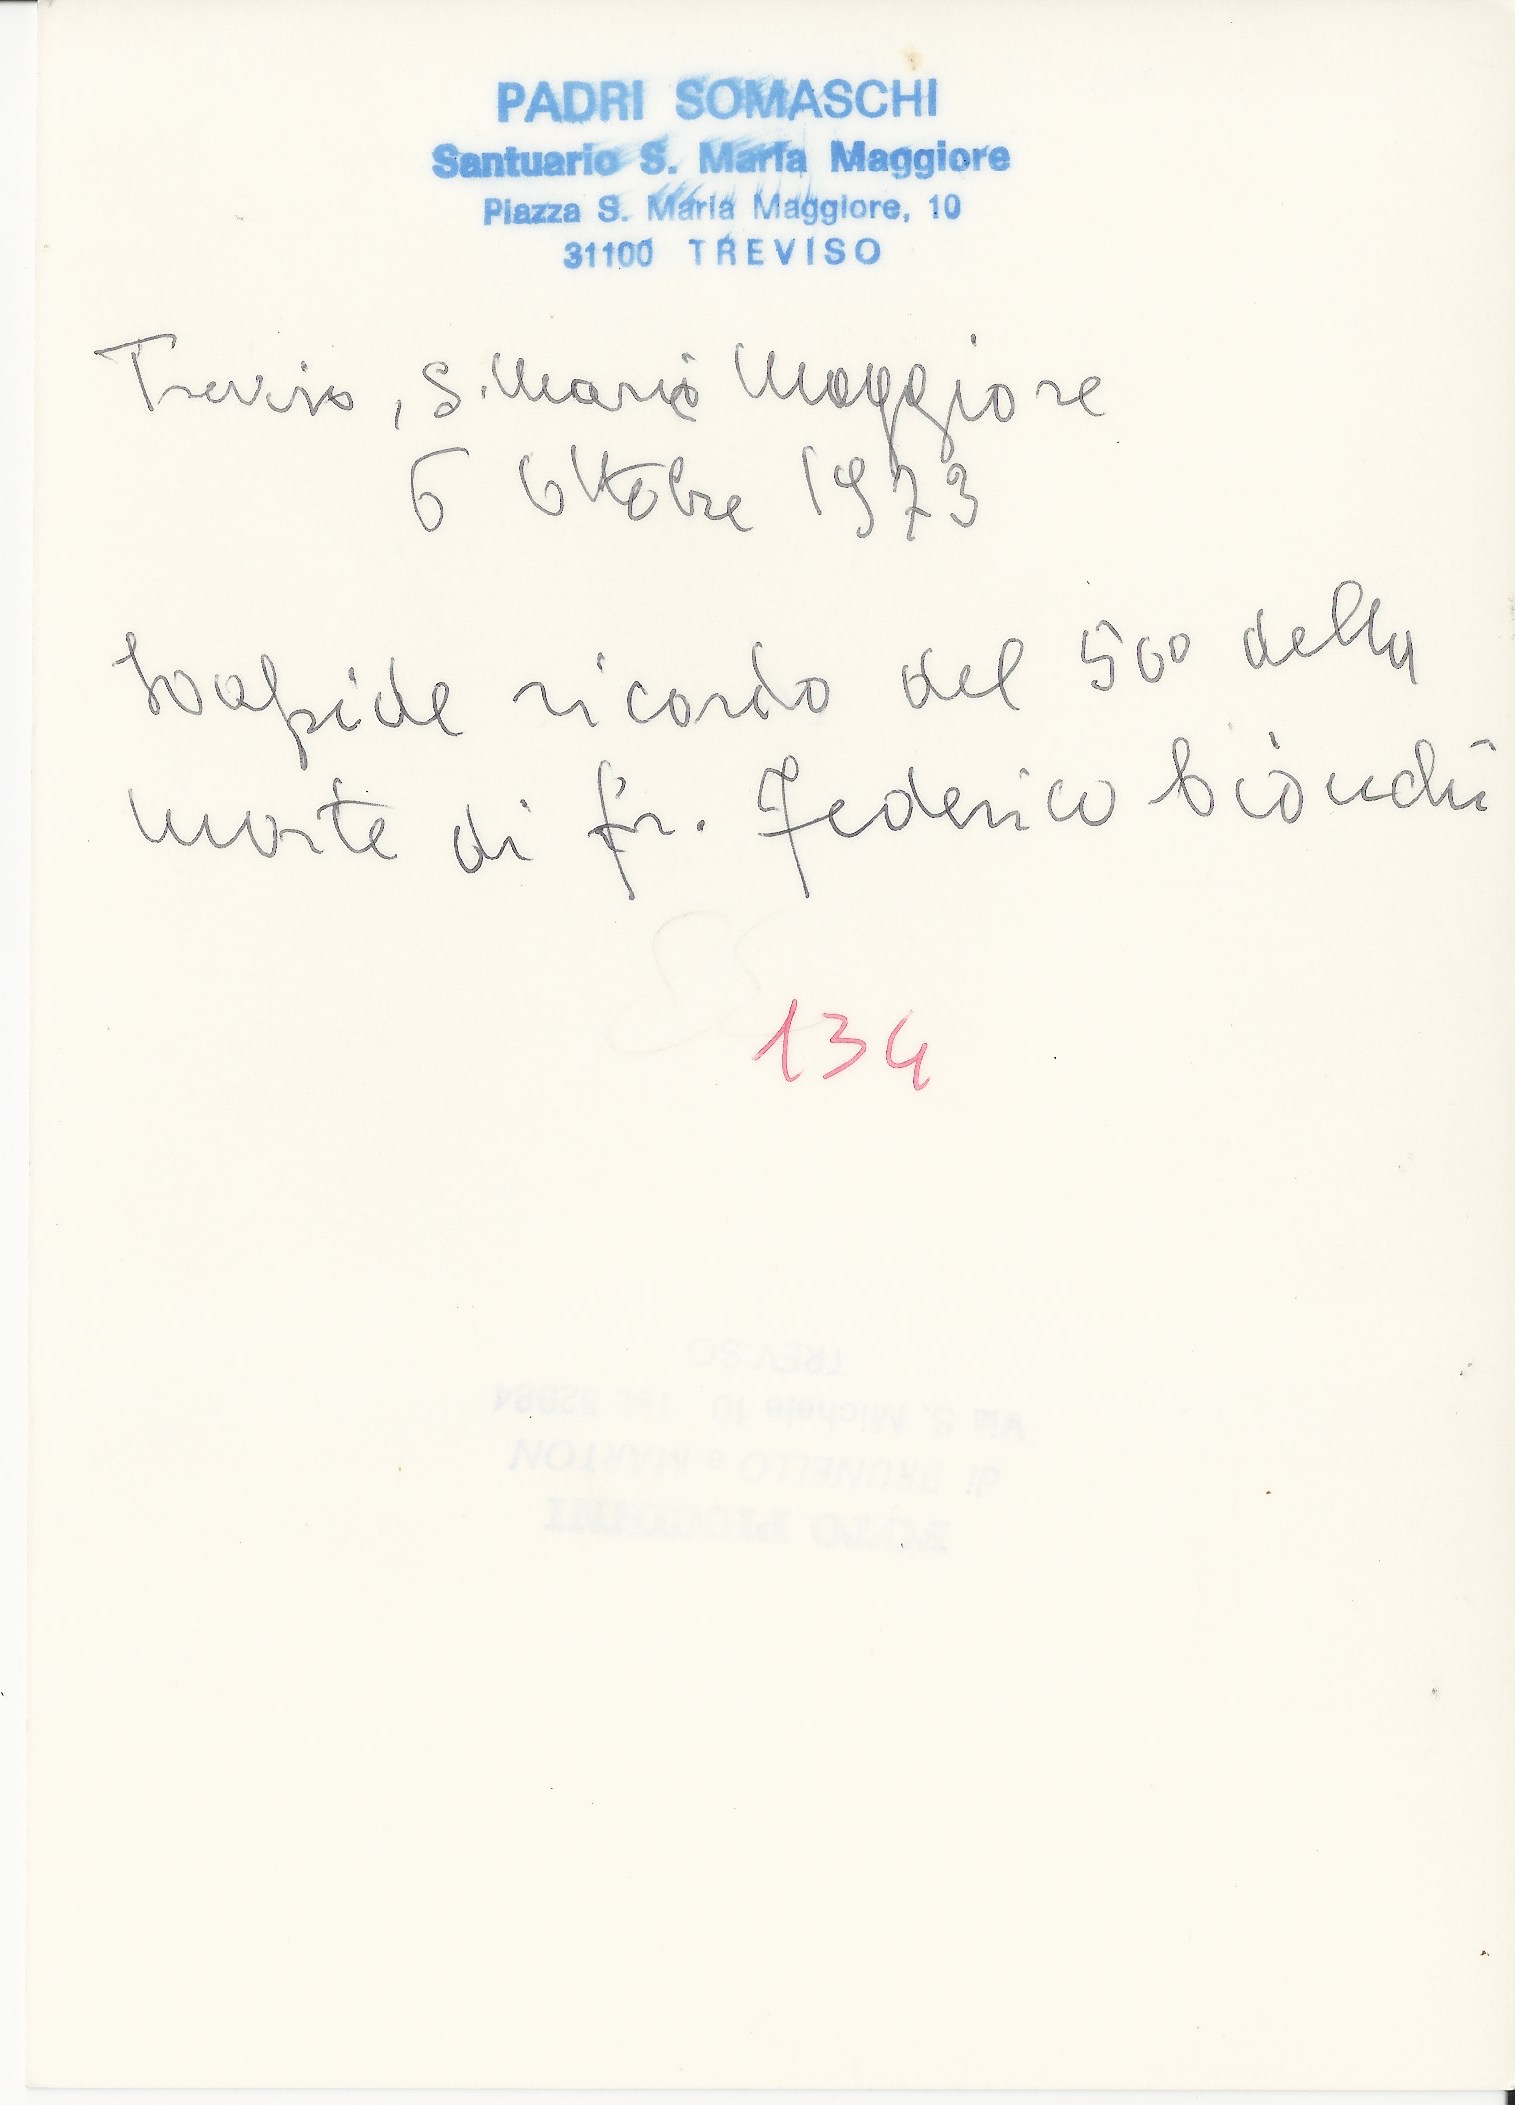 PADRI SOMASCHI
Santuario S. Maria Maggiore
Piazza S. Maria Maggiore, 10
31100 TREVISO
Treviso, S. Maria Maggiore
6 Ottobre 1973
Lapide ricordo del 500 della
morte di fr. Federico Bianchi
134
TREVISO
Via S. Michele 10 Tel. 52984
di BRUNELLO e MARTON
FOTO PICCINNI